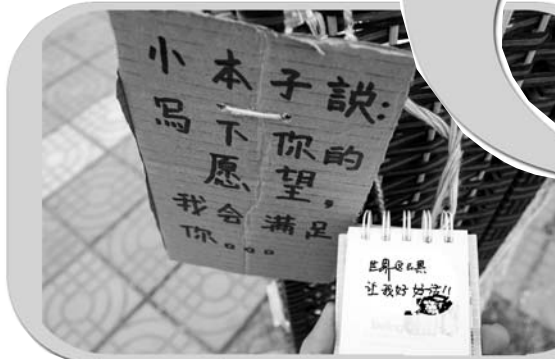 小本子説:
写下你的
愿望,
我会满足
你。。。
让我好好活!!